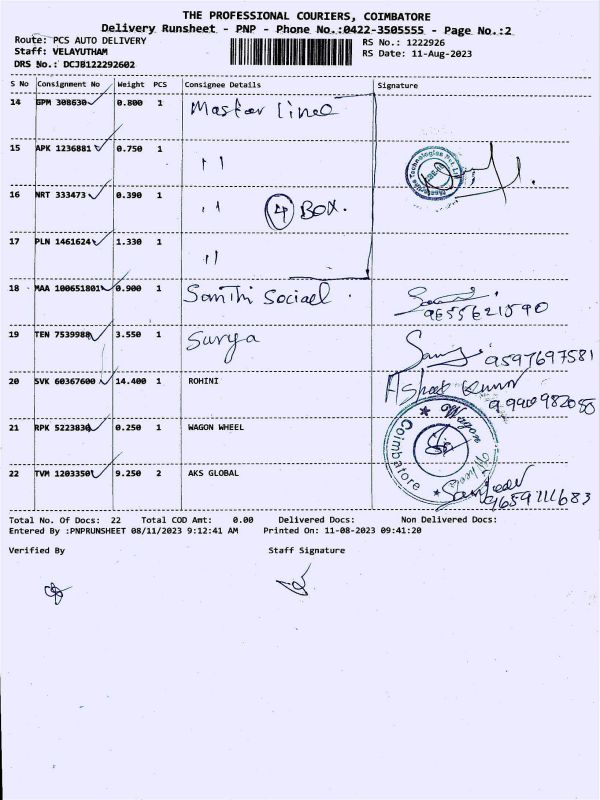 THE PROFESSIONAL COURIERS, COIMBATORE
Delivery Runsheet - PNP - Phone No.:0422-3505555 - Page No.:2
Route: PCS AUTO DELIVERY
RS No.: 1222926
Staff: VELAYUTHAM
RS Date: 11-Aug-2023
DRS No.: DCJB122292602
S No Consignment No Weight PCS Consignee Details Signature
14 GPM 308630 0.800 1 Master line
15 APK 1236881 0.750 1 ''
16 NRT 333473 0.390 1 '' 4 BOX.
17 PLN 1461624 1.330 1 ''
18 MAA 100651801 0.900 1 Santhi Sociael . 9655621590
19 TEN 7539988 3.550 1 Surya 9597697581
20 SVK 60367600 14.400 1 ROHINI Ashok Kumar
21 RPK 5223830 0.250 1 WAGON WHEEL
Wagon Wheel
Coimbatore
22 TVM 1203350 9.250 2 AKS GLOBAL 9659111683
Total No. Of Docs: 22 Total COD Amt: 0.00 Delivered Docs: Non Delivered Docs:
Entered By :PNPRUNSHEET 08/11/2023 9:12:41 AM Printed On: 11-08-2023 09:41:20
Verified By Staff Signature